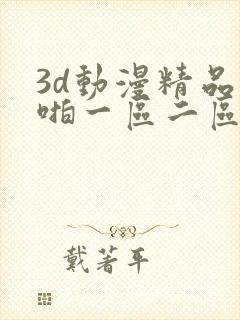 3d動漫精品
啪一區二區
戴著平